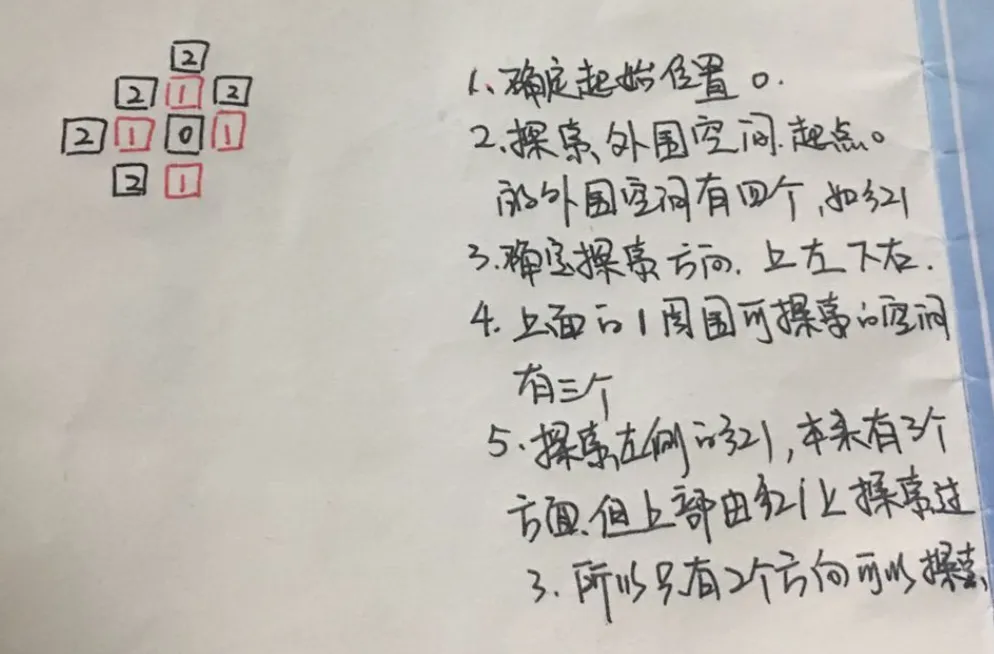 2
2 1 2
2 1 0 1
2 1
1、确定起始位置0.
2.探索外围空间.起点0
的外围空间有四个,如红1
3.确定探索方向.上左下右.
4.上面的1周围可探索的空间
有三个
5.探索左侧的红1,本来有3个
方面.但上部由红1上探索过
了.所以只有2个方向可以探索